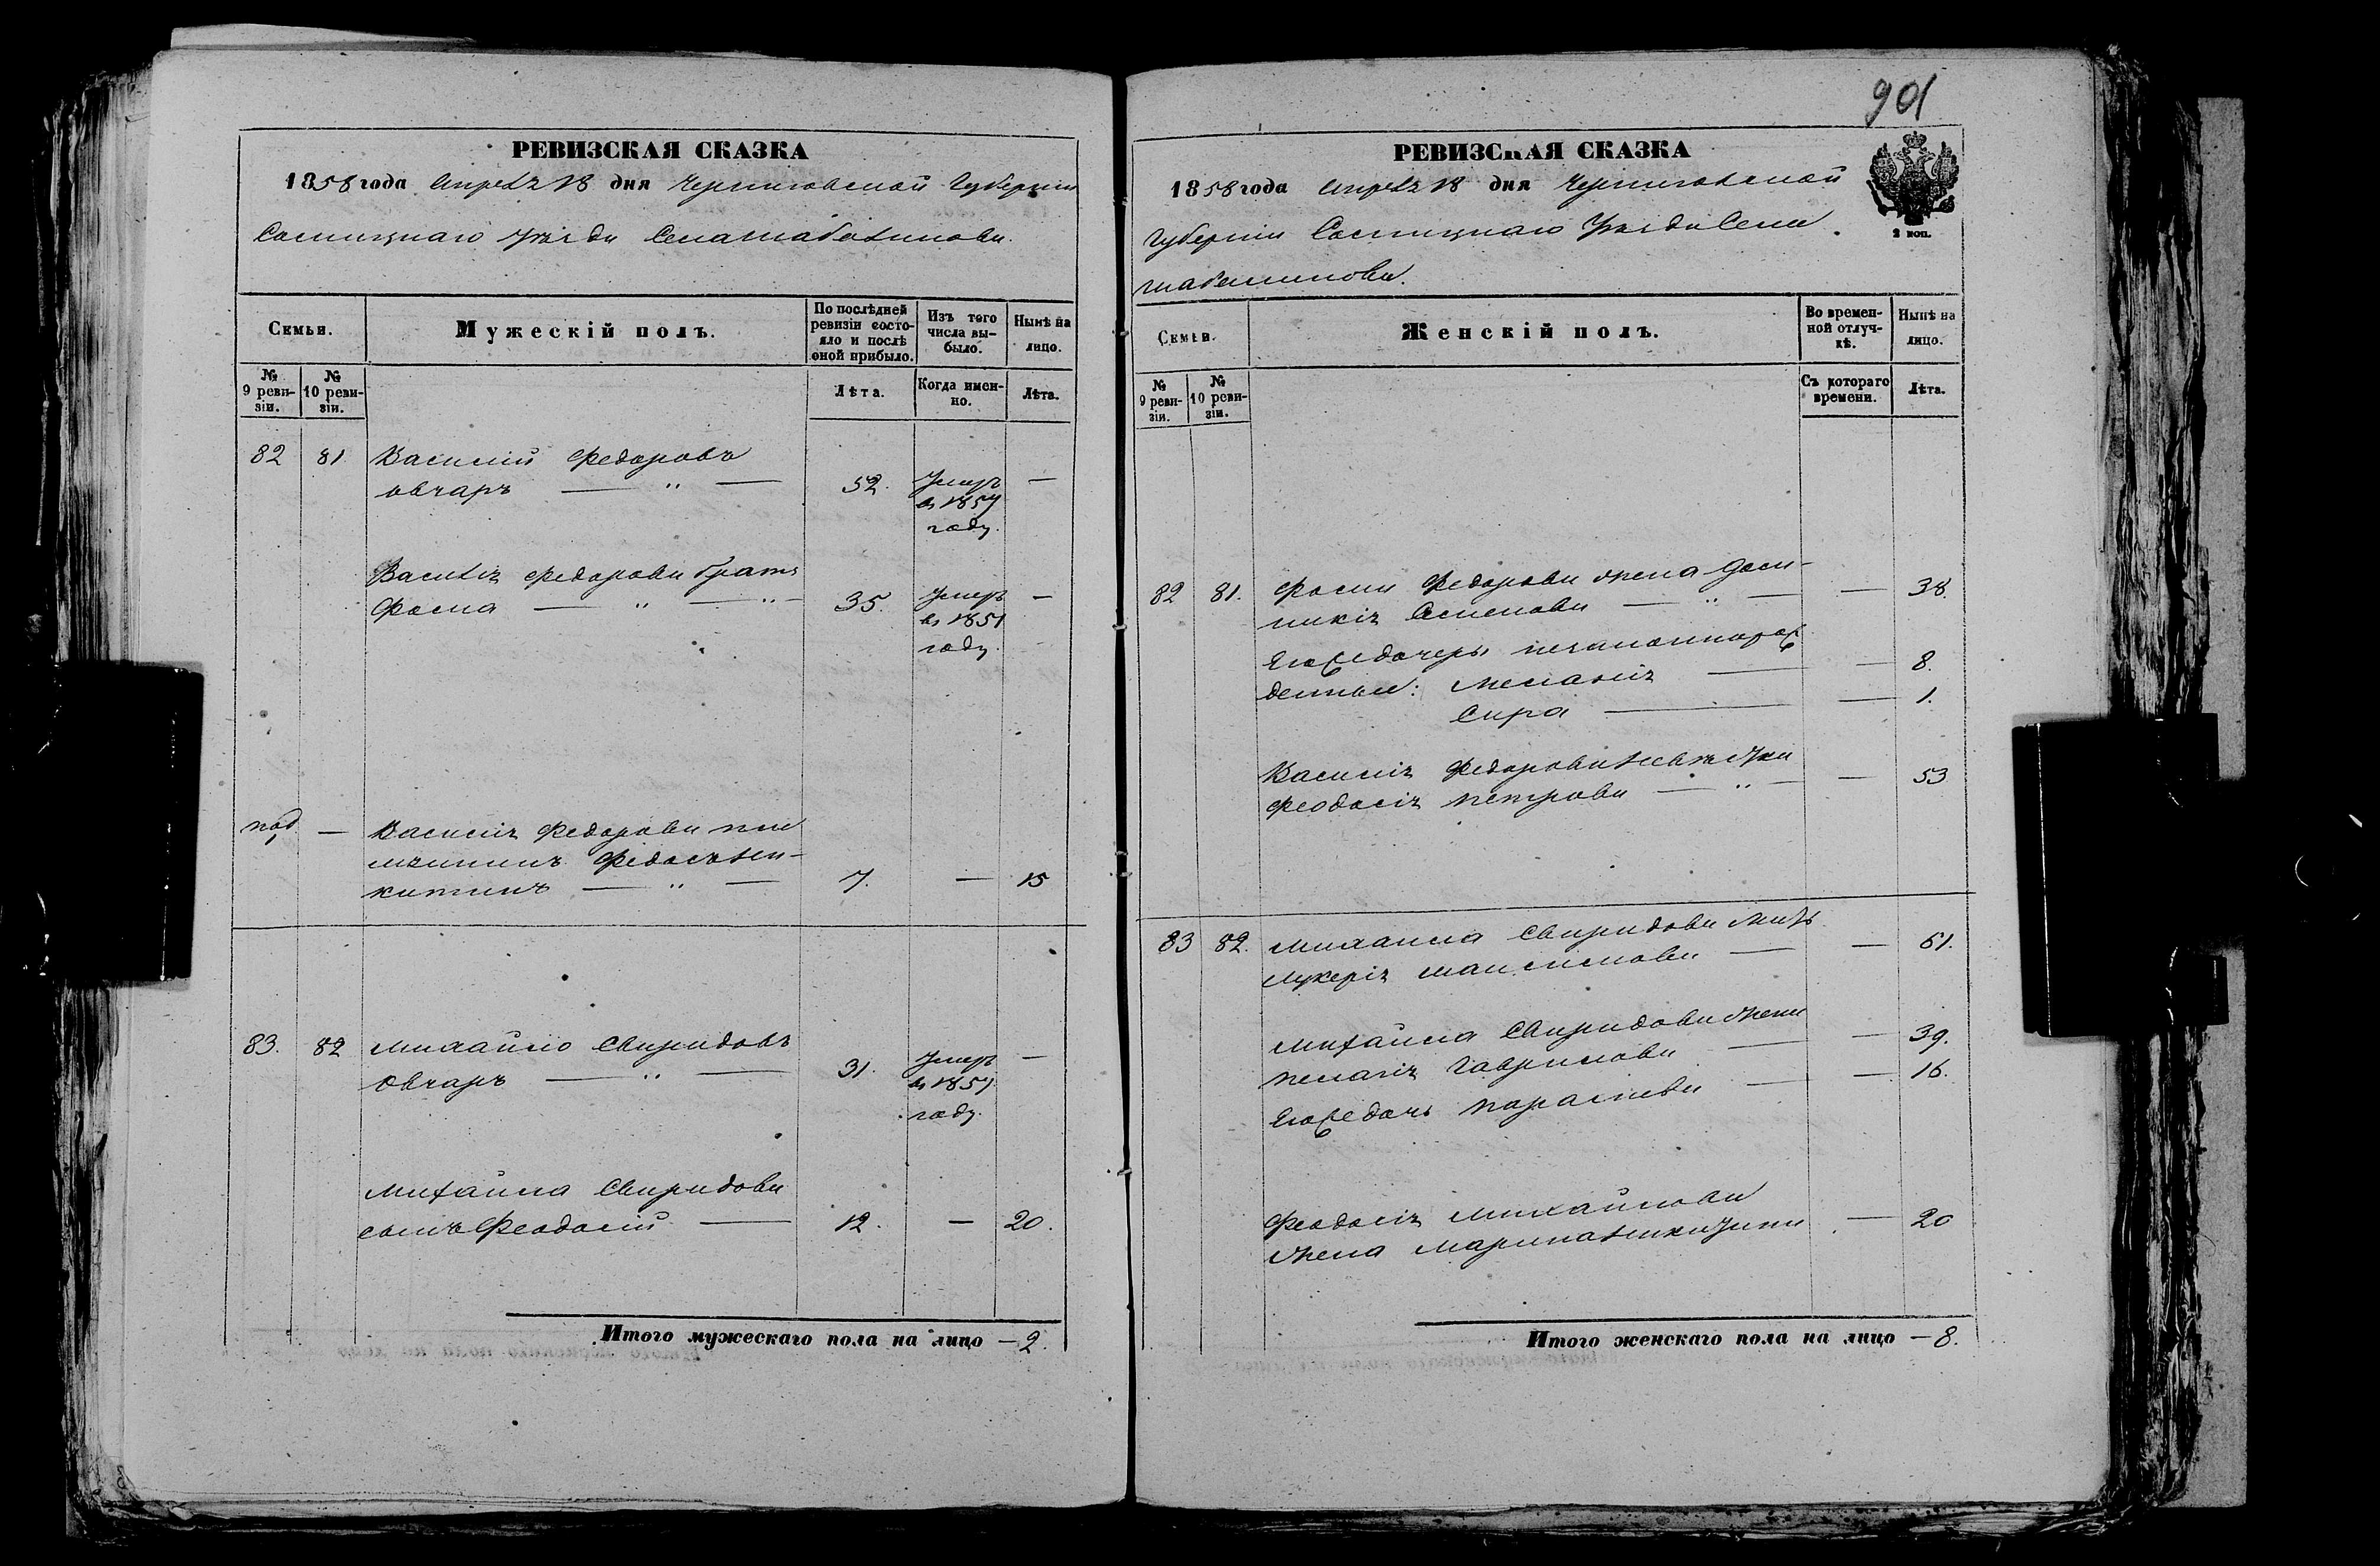 РЕВИЗСКАЯ СКАЗКА
1858 года Апреля 18 дня Черниговской Губернии
Сосницкаго уезда Села Шабалинова.
Семьи.
Мужескій полъ.
По послѣдней ревизіи состояло и послѣ оной прибыло.
Изъ того числа выбыло.
Нынѣ на лицо.
№ 9 ревизіи.
№ 10 ревизіи.
Лѣта.
Когда именно.
Лѣта.
82 81 Василий Федоровъ
овчаръ — " — 52. Умеръ —
въ 1857
году.
Василія Федорова братъ
Фома — " — " — 35. Умеръ —
въ 1851
году.
под — Василія Федорова пле
мянникъ Федосъ Ни-
китинъ — " — 7. — 15
83. 82 Михайло Свиридовъ
Овчаръ — " — 31. Умеръ —
въ 1857
году.
Михайла Свиридова
сынъ Феодосий — 12. — 20.
Итого мужескаго пола на лицо — 2.
901
РЕВИЗСКАЯ СКАЗКА
1858 года Апреля 18 дня Черниговской
Губернии Сосницкаго Уезда Села
Шабалинова.
2 коп.
Семьи.
Женскій полъ.
Во временной отлучкѣ.
Нынѣ на лицо.
№ 9 ревизіи.
№ 10 ревизіи.
Съ котораго времени.
Лѣта.
82 81. Фомы Федорова жена Доми-
никія Семенова — " — — 38.
Его же дочери незаконнорож
денныя: Меланія — — 8.
Сира — — 1.
Василія Федорова невестка
Феодосія Петрова — " — — 53
83 82. Михаила Свиридова мать
Лукерія Максимова — — 61.
Михайла Свиридова жена
Пелагія Гаврилова — — 39.
Его же дочь Параскева — — 16.
Феодосія Михайлова
жена Марина Никитина — 20
Итого женскаго пола на лицо — 8.